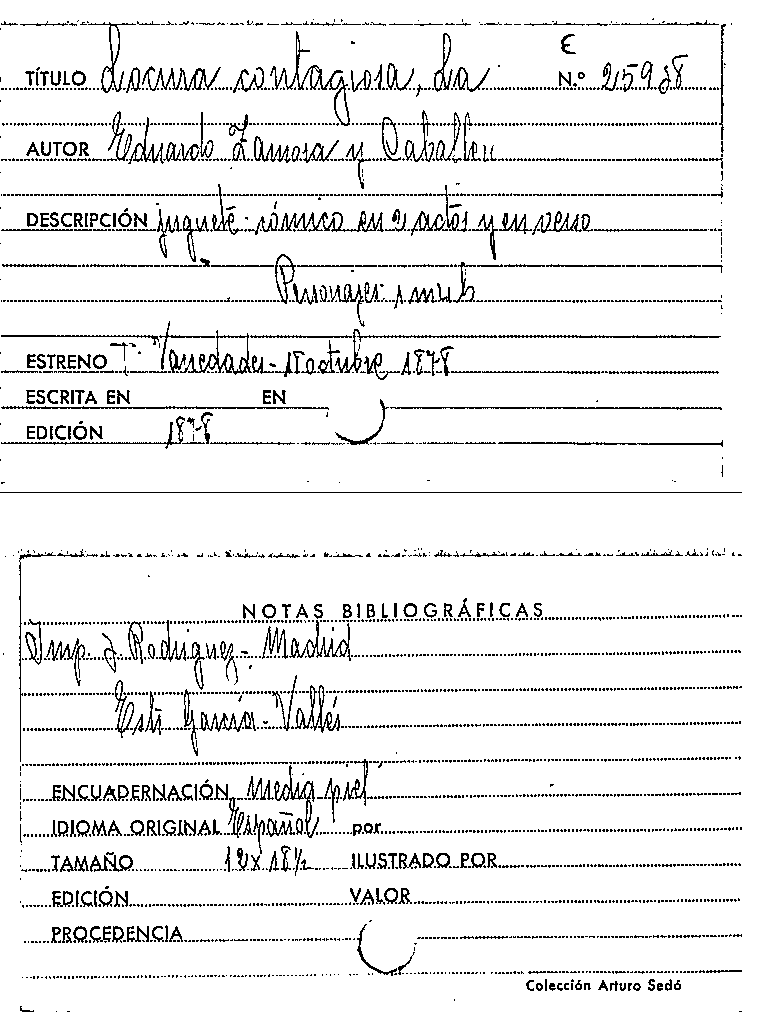 €
TÍTULO Locura contagiosa, La N.º 25928
AUTOR Eduardo Zamora y Caballero
DESCRIPCIÓN juguete cómico en 2 actos y en verso
Personajes:
ESTRENO T. Variedades - 18 octubre 1878
ESCRITA EN EN
EDICIÓN 1878
NOTAS BIBLIOGRÁFICAS
Imp. J. Rodriguez - Madrid
García - Vallés
ENCUADERNACIÓN Media piel
IDIOMA ORIGINAL Español por
TAMAÑO 12 x 18 ½ ILUSTRADO POR
EDICIÓN VALOR
PROCEDENCIA
Colección Arturo Sedó